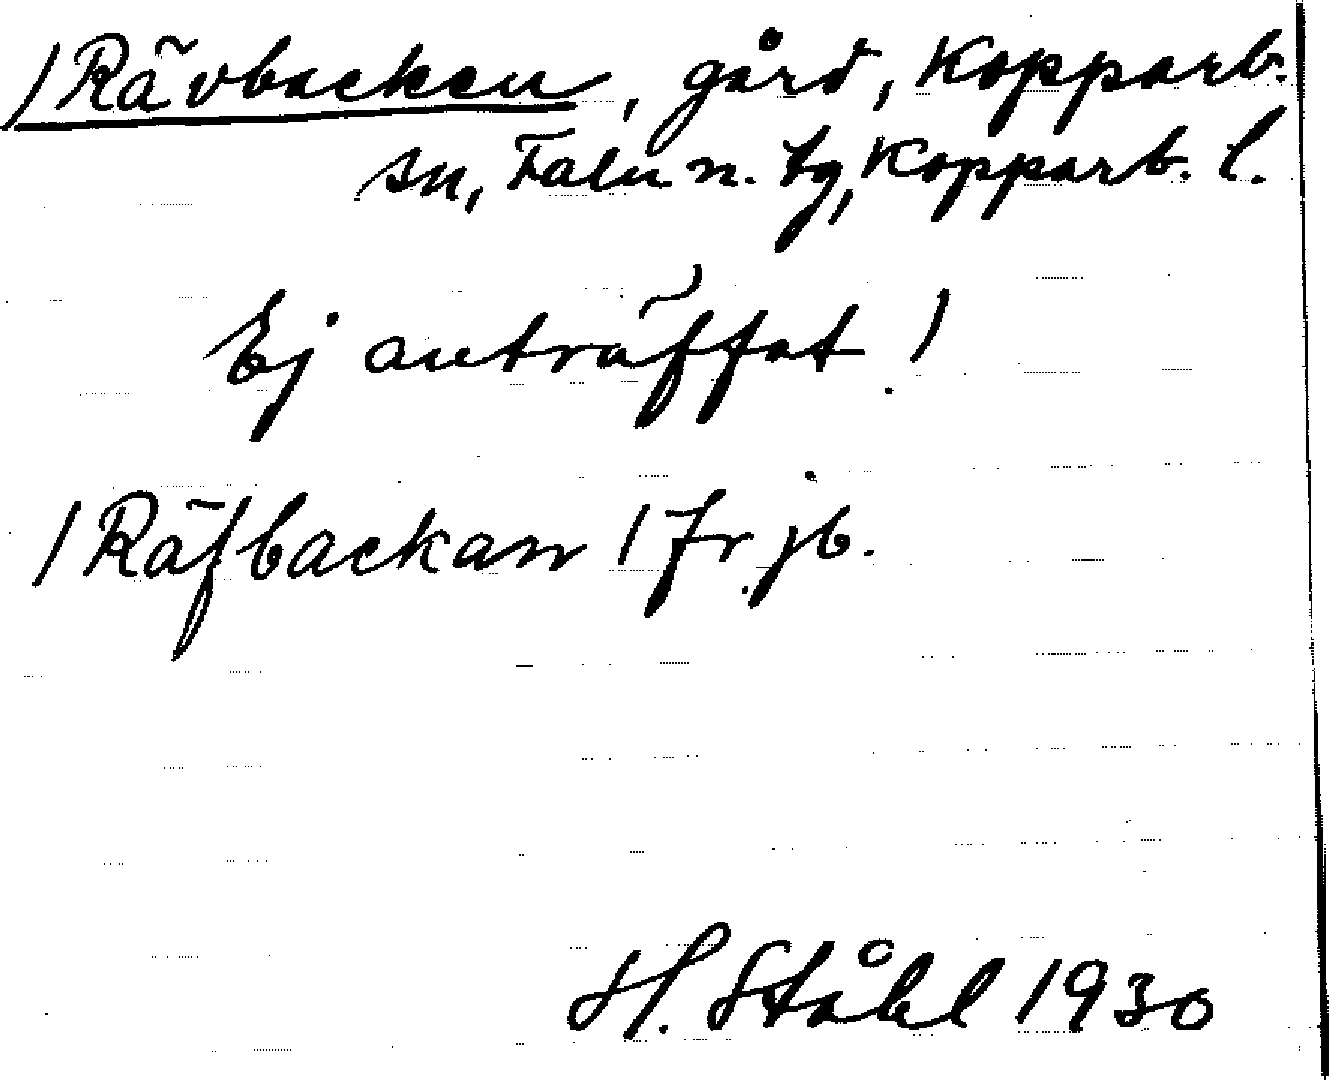 /Rävbacken, gård, Kopparb.
sn, Falu n. tg, Kopparb. l.
Ej anträffat!
/Räfbackan/ fr. jb.
H. Ståhl 1930